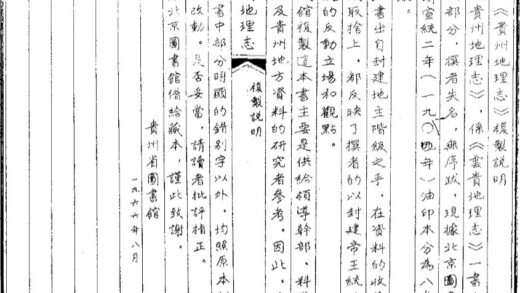 《贵州地理志》複製說明
《贵州地理志》，係《雲贵地理志》一書
部分，撰者失名，無序跋，現據北京圖
宣統二年（一九〇年）油印本分為八
書出自封建地主階級之手，在资料的收
取捨上，都反映了撰者的以封建帝王統
的反動立場和觀點。
館複製這本書主要是供给領導幹部、科
及贵州地方资料的研究者參考。因此，
地理志
複製說明
書中部分明顯的錯别字以外，均照原本
改動。是否妥當，請讀者批評指正。
北京圖書館借给藏本，謹此致謝。
贵州省圖書館
一九六六年八月